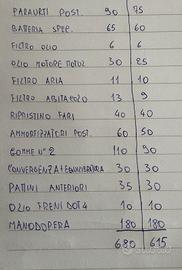 PARAURTI POST. 90 75
BATTERIA SPEC. 65 60
FILTRO OLIO 6 6
OLIO MOTORE MOTUL 30 25
FILTRO ARIA 11 10
FILTRO ABITACOLO 13 9
RIPRISTINO FARI 40 40
AMMORTIZZATORI POST. 60 50
GOMME N°2 110 90
CONVERGENZA/EQUILIBRATURA 30 30
PATTINI ANTERIORI 35 30
OLIO FRENI DOT4 10 10
MANODOPERA 180 180
680 615